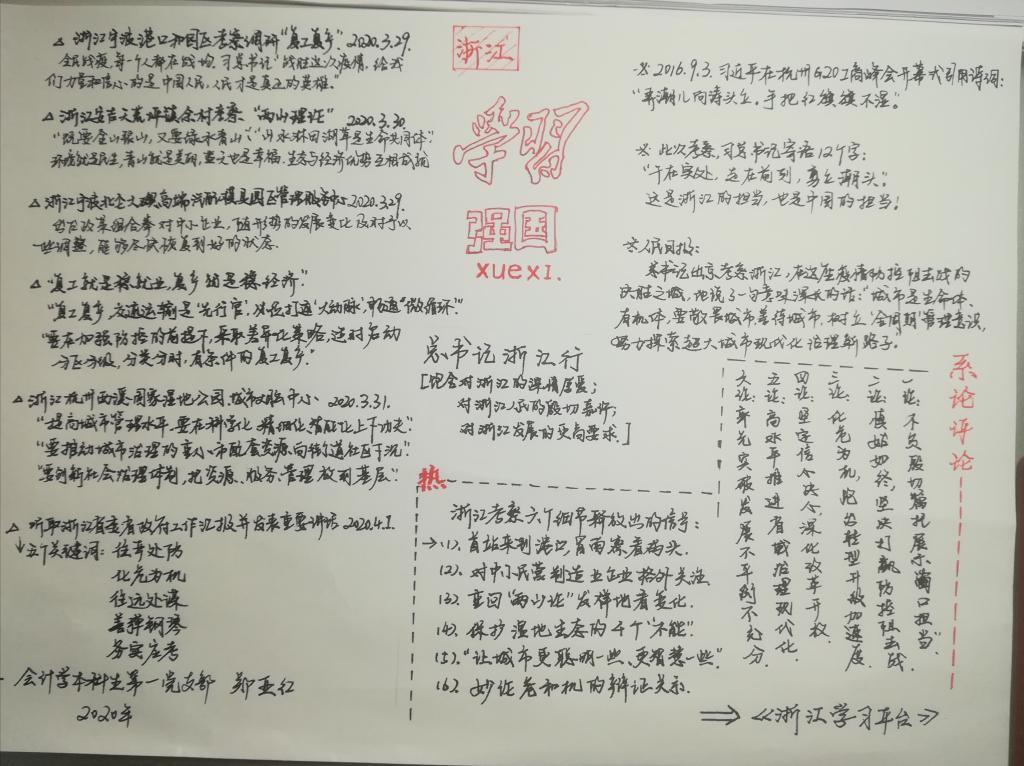 △ 浙江宁波港口和园区考察调研"复工复产" 2020.3.29.
全民战疫,每一个人都在战场,习总书记"战胜这次疫情,给我
们力量和信心的是中国人民,人民才是真正的英雄。"
△ 浙江安吉天荒坪镇余村考察 "两山理论" 2020.3.30.
"既要金山银山,又要绿水青山" "山水林田湖草是生命共同体"
环境就是民生,青山就是美丽,蓝天也是幸福.生态与经济优势互相
△ 浙江宁波北仑大碶高端汽配模具园区管理服务中心 2020.3.29.
对中小企业,随形势的发展变化及时予以
一些调整,能够尽快恢复到好的状态.
△ "复工就是稳就业,复产就是稳经济"
"复工复产,交通运输是'先行官',必须打通'大动脉',畅通'微循环'"
"要在加强防控的前提下,采取差异化策略,适时启动
分区分级,分类分时,有条件的复工复产."
△ 浙江杭州西溪国家湿地公园 城市大脑中心 2020.3.31.
"提高城市管理水平,要在科学化 精细化 智能化上下功夫"
"要推动城市治理的重心和配套资源向街道社区下沉"
"要创新社会治理体制,把资源、服务、管理放到基层"
△ 听取浙江省委省政府工作汇报并发表重要讲话 2020.4.1.
↓ 五个关键词: 往事处防
化危为机
往远处谋
善弹钢琴
务实
会计学本科生第一党支部 郑亚红
2020年
浙江
学习
强国
xuexi.
总书记浙江行
[饱含对浙江的深情厚爱;
对浙江人民的殷切牵挂;
对浙江发展的更高要求]
热
浙江考察六个细节释放出的信号:
→(1). 首站来到港口,冒雨察看码头.
(2). 对中小民营制造业企业格外关注
(3). 重回"两山论"发祥地看变化.
(4). 保护湿地生态的4个"不能"
(5). "让城市更聪明一些、更智慧一些"
(6). 妙论危和机的辩证关系.
※ 2016.9.3. 习近平在杭州G20工商峰会开幕式引用诗词:
"弄潮儿向涛头立。手把红旗旗不湿。"
※ 此次考察,习总书记寄语12个字:
"干在实处,走在前列,勇立潮头"。
这是浙江的担当,也是中国的担当!
※ 人民日报:
总书记出京考察浙江,在这座疫情防控阻击战的
决胜之城,他说了一句意味深长的话:"城市是生命体、
有机体,要敬畏城市、善待城市,树立'全周期'管理意识,
努力探索超大城市现代化治理新路子。"
系论评论
一论:不负殷切嘱托展示"窗口担当"
二论:慎始如终,坚决打赢防控阻击战
三论:化危为机,跑出转型升级加速度
四论:坚定信念决心深化改革开放
五论:高水平推进省域治理现代化
六论:率先突破发展不平衡不充分
⇒《浙江学习平台》